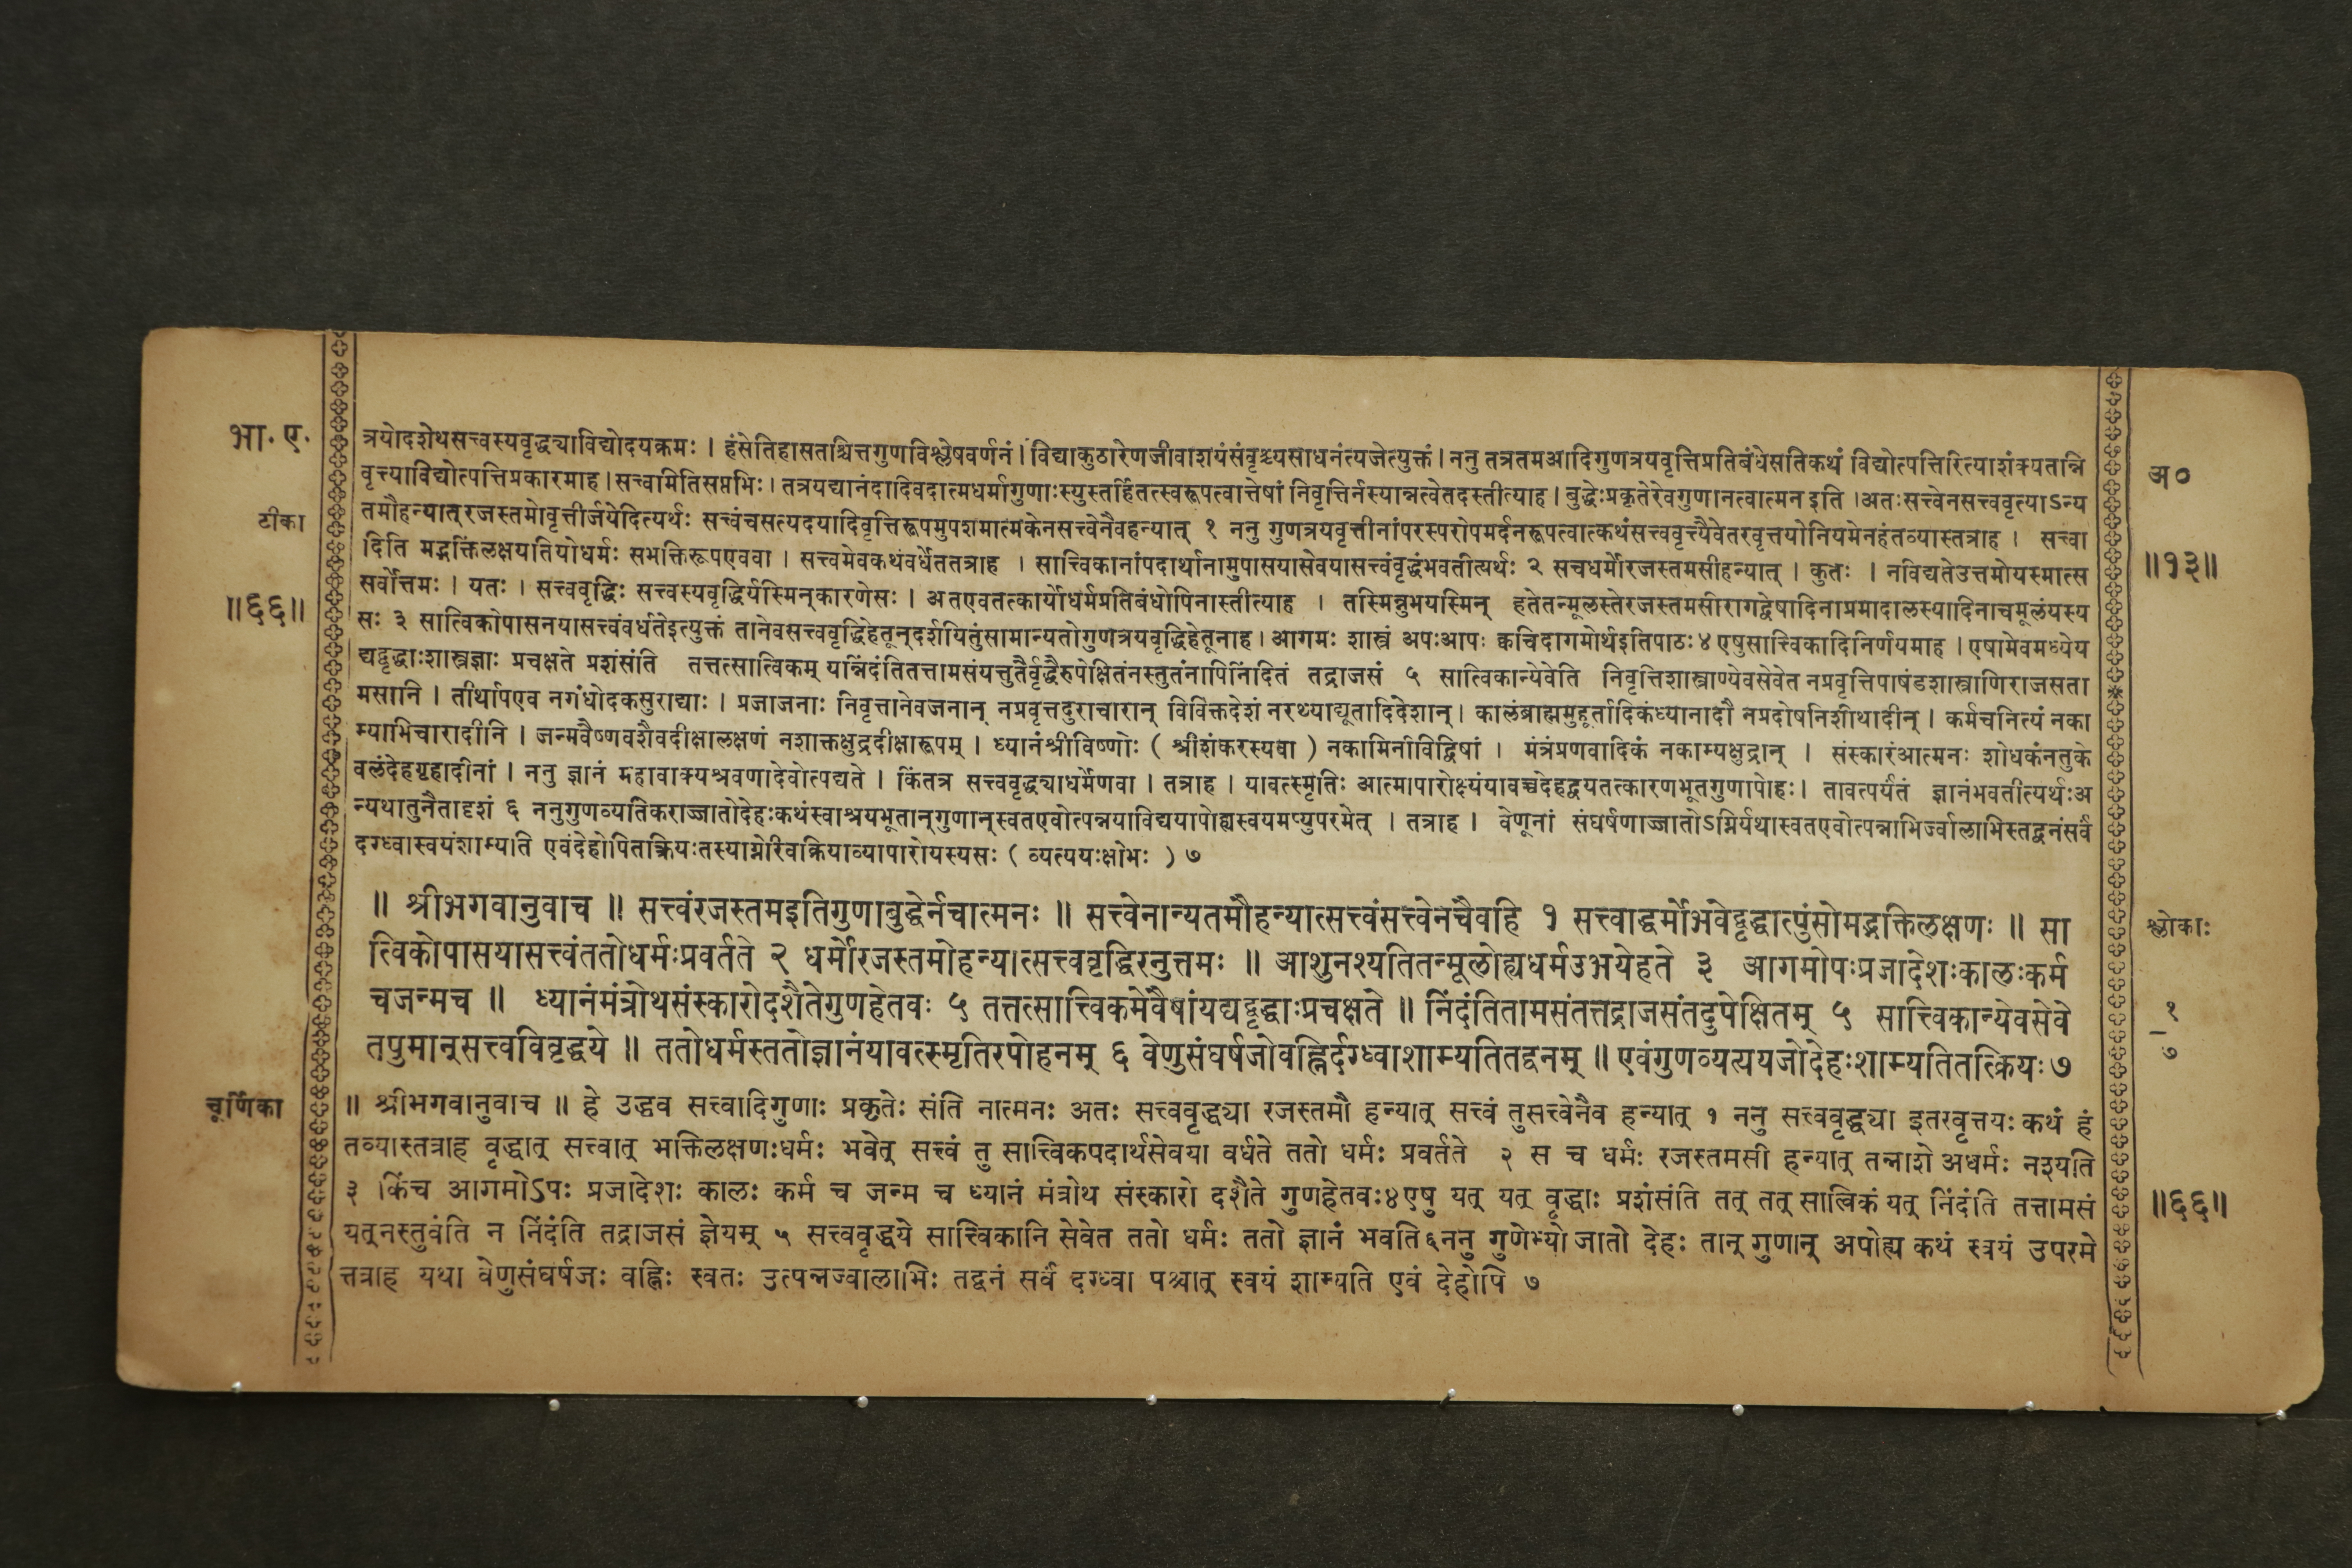 भा. ए.
टीका
॥६६॥
त्रयोदशेथसत्त्वस्यवृद्ध्याविद्योदयक्रमः । हंसेतिहासतश्चित्तगुणविश्लेषवर्णनं । विद्याकुठारेणजीवाशयंसंवृश्च्यसाधनंत्यजेत्युक्तं । ननु तत्रतमआदिगुणत्रयवृत्तिप्रतिबंधेसतिकथं विद्योत्पत्तिरित्याशंक्यतान्नि
वृत्त्याविद्योत्पत्तिप्रकारमाह । सत्त्वमितिसप्तभिः । तत्रयद्यानंदादिवदात्मधर्मागुणाःस्युस्तर्हितत्स्वरूपत्वात्तेषां निवृत्तिर्नस्यान्नत्वेतदस्तीत्याह । बुद्धेःप्रकृतेरेवगुणानत्वात्मन इति ।अतःसत्त्वेनसत्त्ववृत्याऽन्य
तमौहन्यात्‌रजस्तमोवृत्तीर्जयेदित्यर्थः सत्त्वंचसत्यदयादिवृत्तिरूपमुपशमात्मकेनसत्त्वेनैवहन्यात् १ ननु गुणत्रयवृत्तीनांपरस्परोपमर्दनरूपत्वात्कथंसत्त्ववृत्त्यैवेतरवृत्तयोनियमेनहंतव्यास्तत्राह । सत्त्वा
दिति मद्भक्तिंलक्षयतियोधर्मः सभक्तिरूपएववा । सत्त्वमेवकथंवर्धेततत्राह । सात्त्विकानांपदार्थानामुपासयासेवयासत्त्वंवृद्धंभवतीत्यर्थः २ सचधर्मोरजस्तमसीहन्यात् । कुतः । नविद्यतेउत्तमोयस्मात्स
सर्वोत्तमः । यतः । सत्त्ववृद्धिः सत्त्वस्यवृद्धिर्यस्मिन्‌कारणेसः । अतएवतत्कार्योधर्मप्रतिबंधोपिनास्तीत्याह । तस्मिन्नुभयस्मिन् हतेतन्मूलस्तेरजस्तमसीरागद्वेषादिनाप्रमादालस्यादिनाचमूलंयस्य
सः ३ सात्विकोपासनयासत्त्वंवर्धतेइत्युक्तं तानेवसत्त्ववृद्धिहेतून्‌दर्शयितुंसामान्यतोगुणत्रयवृद्धिहेतूनाह । आगमः शास्त्रं अपःआपः क्वचिदागमोर्थइतिपाठः४ एषुसात्त्विकादिनिर्णयमाह । एषामेवमध्येय
द्यद्वृद्धाःशास्त्रज्ञाः प्रचक्षते प्रशंसंति तत्तत्सात्विकम् यन्निंदंतितत्तामसंयत्तुतैर्वृद्धैरुपेक्षितंनस्तुतंनापिनिंदितं तद्राजसं ५ सात्विकान्येवेति निवृत्तिशास्त्राण्येवसेवेत नप्रवृत्तिपाषंडशास्त्राणिराजसता
मसानि । तीर्थापएव नगंधोदकसुराद्याः । प्रजाजनाः निवृत्तानेवजनान् नप्रवृत्तदुराचारान् विविक्तदेशं नरथ्याद्यूतादिदेशान् । कालंब्राह्ममुहूर्तादिकंध्यानादौ नप्रदोषनिशीथादीन् । कर्मचनित्यं नका
म्याभिचारादीनि । जन्मवैष्णवशैवदीक्षालक्षणं नशाक्तक्षुद्रदीक्षारूपम् । ध्यानंश्रीविष्णोः ( श्रीशंकरस्यवा ) नकामिनीविद्विषां । मंत्रंप्रणवादिकं नकाम्यक्षुद्रान् । संस्कारंआत्मनः शोधकंनतुके
वलंदेहगृहादीनां । ननु ज्ञानं महावाक्यश्रवणादेवोत्पद्यते । किंतत्र सत्त्ववृद्ध्याधर्मेणवा । तत्राह । यावत्स्मृतिः आत्मापारोक्ष्यंयावच्चदेहद्वयतत्कारणभूतगुणापोहः । तावत्पर्यंतं ज्ञानंभवतीत्यर्थःअ
न्यथातुनैतादृशं ६ ननुगुणव्यतिकराज्जातोदेहःकथंस्वाश्रयभूतान्‌गुणान्‌स्वतएवोत्पन्नयाविद्ययापोह्यस्वयमप्युपरमेत् । तत्राह । वेणूनां संघर्षणाज्जातोऽग्निर्यथास्वतएवोत्पन्नाभिर्ज्वालाभिस्तद्वनंसर्वं
दग्ध्वास्वयंशाम्यति एवंदेहोपितक्रियःतस्याग्नेरिवक्रियाव्यापारोयस्यसः ( व्यत्ययःक्षोभः ) ७
॥ श्रीभगवानुवाच ॥ सत्त्वंरजस्तमइतिगुणाबुद्धेर्नचात्मनः ॥ सत्त्वेनान्यतमौहन्यात्सत्त्वंसत्त्वेनचैवहि १ सत्त्वाद्धर्मोभवेद्वृद्धात्पुंसोमद्भक्तिलक्षणः ॥ सा
त्विकोपासयासत्त्वंततोधर्मःप्रवर्तते २ धर्मोरजस्तमोहन्यात्सत्त्ववृद्धिरनुत्तमः ॥ आशुनश्यतितन्मूलोह्यधर्मउभयेहते ३ आगमोपःप्रजादेशःकालःकर्म
चजन्मच ॥ ध्यानंमंत्रोथसंस्कारोदशैतेगुणहेतवः ५ तत्तत्सात्त्विकमेवैषांयद्यद्वृद्धाःप्रचक्षते ॥ निंदंतितामसंतत्तद्राजसंतदुपेक्षितम् ५ सात्त्विकान्येवसेवे
तपुमान्‌सत्त्वविवृद्धये ॥ ततोधर्मस्ततोज्ञानंयावत्स्मृतिरपोहनम् ६ वेणुसंघर्षजोवह्निर्दग्ध्वाशाम्यतितद्वनम् ॥ एवंगुणव्यत्ययजोदेहःशाम्यतितत्क्रियः ७
चूर्णिका
॥ श्रीभगवानुवाच ॥ हे उद्धव सत्त्वादिगुणाः प्रकृतेः संति नात्मनः अतः सत्त्ववृद्ध्या रजस्तमौ हन्यात् सत्त्वं तुसत्त्वेनैव हन्यात् १ ननु सत्त्ववृद्ध्या इतरवृत्तयः कथं हं
तव्यास्तत्राह वृद्धात् सत्त्वात् भक्तिलक्षणःधर्मः भवेत् सत्त्वं तु सात्त्विकपदार्थसेवया वर्धते ततो धर्मः प्रवर्तते २ स च धर्मः रजस्तमसी हन्यात् तन्नाशे अधर्मः नश्यति
३ किंच आगमोऽपः प्रजादेशः कालः कर्म च जन्म च ध्यानं मंत्रोथ संस्कारो दशैते गुणहेतवः४एषु यत् यत् वृद्धाः प्रशंसंति तत् तत् सात्विकं यत् निंदंति तत्तामसं
यत्‌नस्तुवंति न निंदंति तद्राजसं ज्ञेयम् ५ सत्त्ववृद्धये सात्त्विकानि सेवेत ततो धर्मः ततो ज्ञानं भवति६ननु गुणेभ्यो जातो देहः तान् गुणान् अपोह्य कथं स्वयं उपरमे
त्तत्राह यथा वेणुसंघर्षजः वह्निः स्वतः उत्पन्नज्वालाभिः तद्वनं सर्वं दग्ध्वा पश्चात् स्वयं शाम्यति एवं देहोपि ७
अ०
॥१३॥
श्लोकाः
१
७
॥६६॥